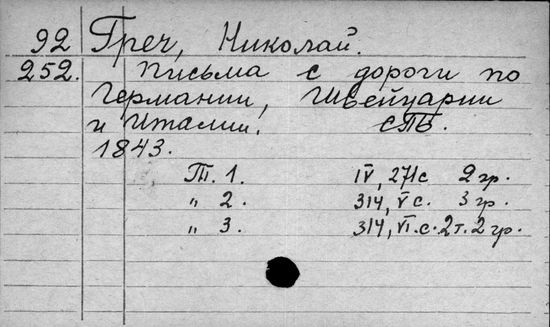 92 Греч, Николай.
252. Письма с дороги по
Германии, Швейцарии
и Италии. СПБ.
1843.
Т. 1. IV, 271с 2 гр.
" 2. 314, V с. 3 гр.
" 3. 314, VI с. 2 т. 2 гр.